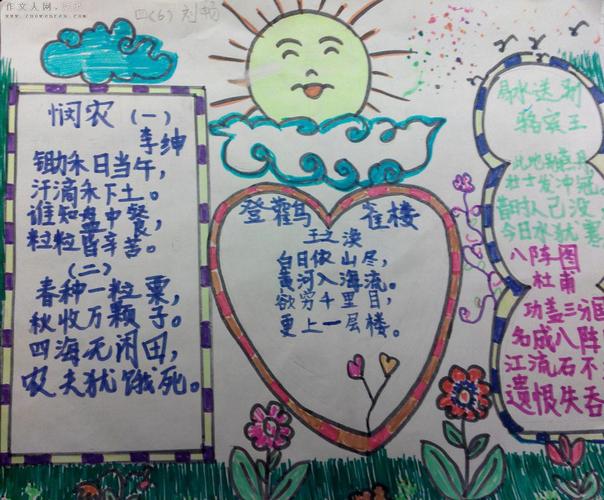 作文人网
www.zuowenren.com
四(6) 刘畅
悯农(一)
李绅
锄禾日当午，
汗滴禾下土。
谁知盘中餐，
粒粒皆辛苦。
(二)
春种一粒粟，
秋收万颗子。
四海无闲田，
农夫犹饿死。
登鹳雀楼
王之涣
白日依山尽，
黄河入海流。
欲穷千里目，
更上一层楼。
易水送别
骆宾王
此地别燕丹
壮士发冲冠
昔时人已没
今日水犹寒
八阵图
杜甫
功盖三分国
名成八阵
江流石不
遗恨失吞